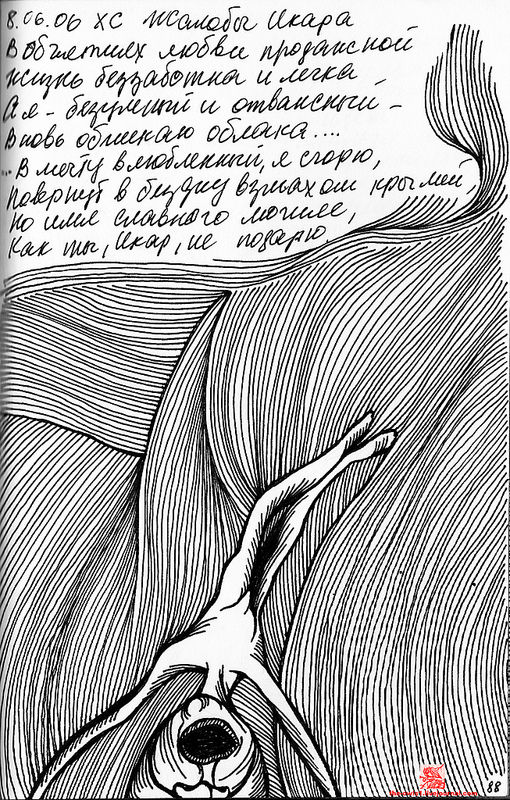 8.06.06 ХС Жалобы Икара
В объятиях любви продажной
Жизнь беззаботна и легка
А я - безумный и отважный -
Вновь обнимаю облака....
... В мечту влюбленный, я сгорю,
Повергнут в бездну взмахом крылий,
Но имя славного могиле,
Как ты, Икар, не подарю.
88